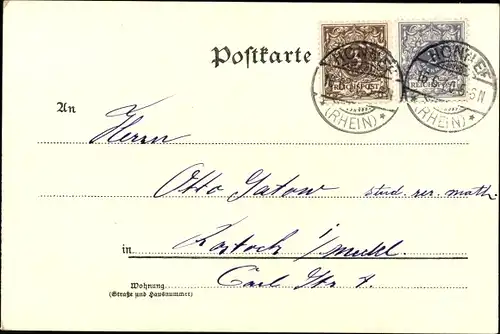 Postkarte
REICHSPOST
HONNEF
(RHEIN)
HONNEF
(RHEIN)
An
Herrn
Otto Gatow stud. rer. math.
in Rostock i/Meckl.
Wohnung
(Straße und Hausnummer)
Carl Str